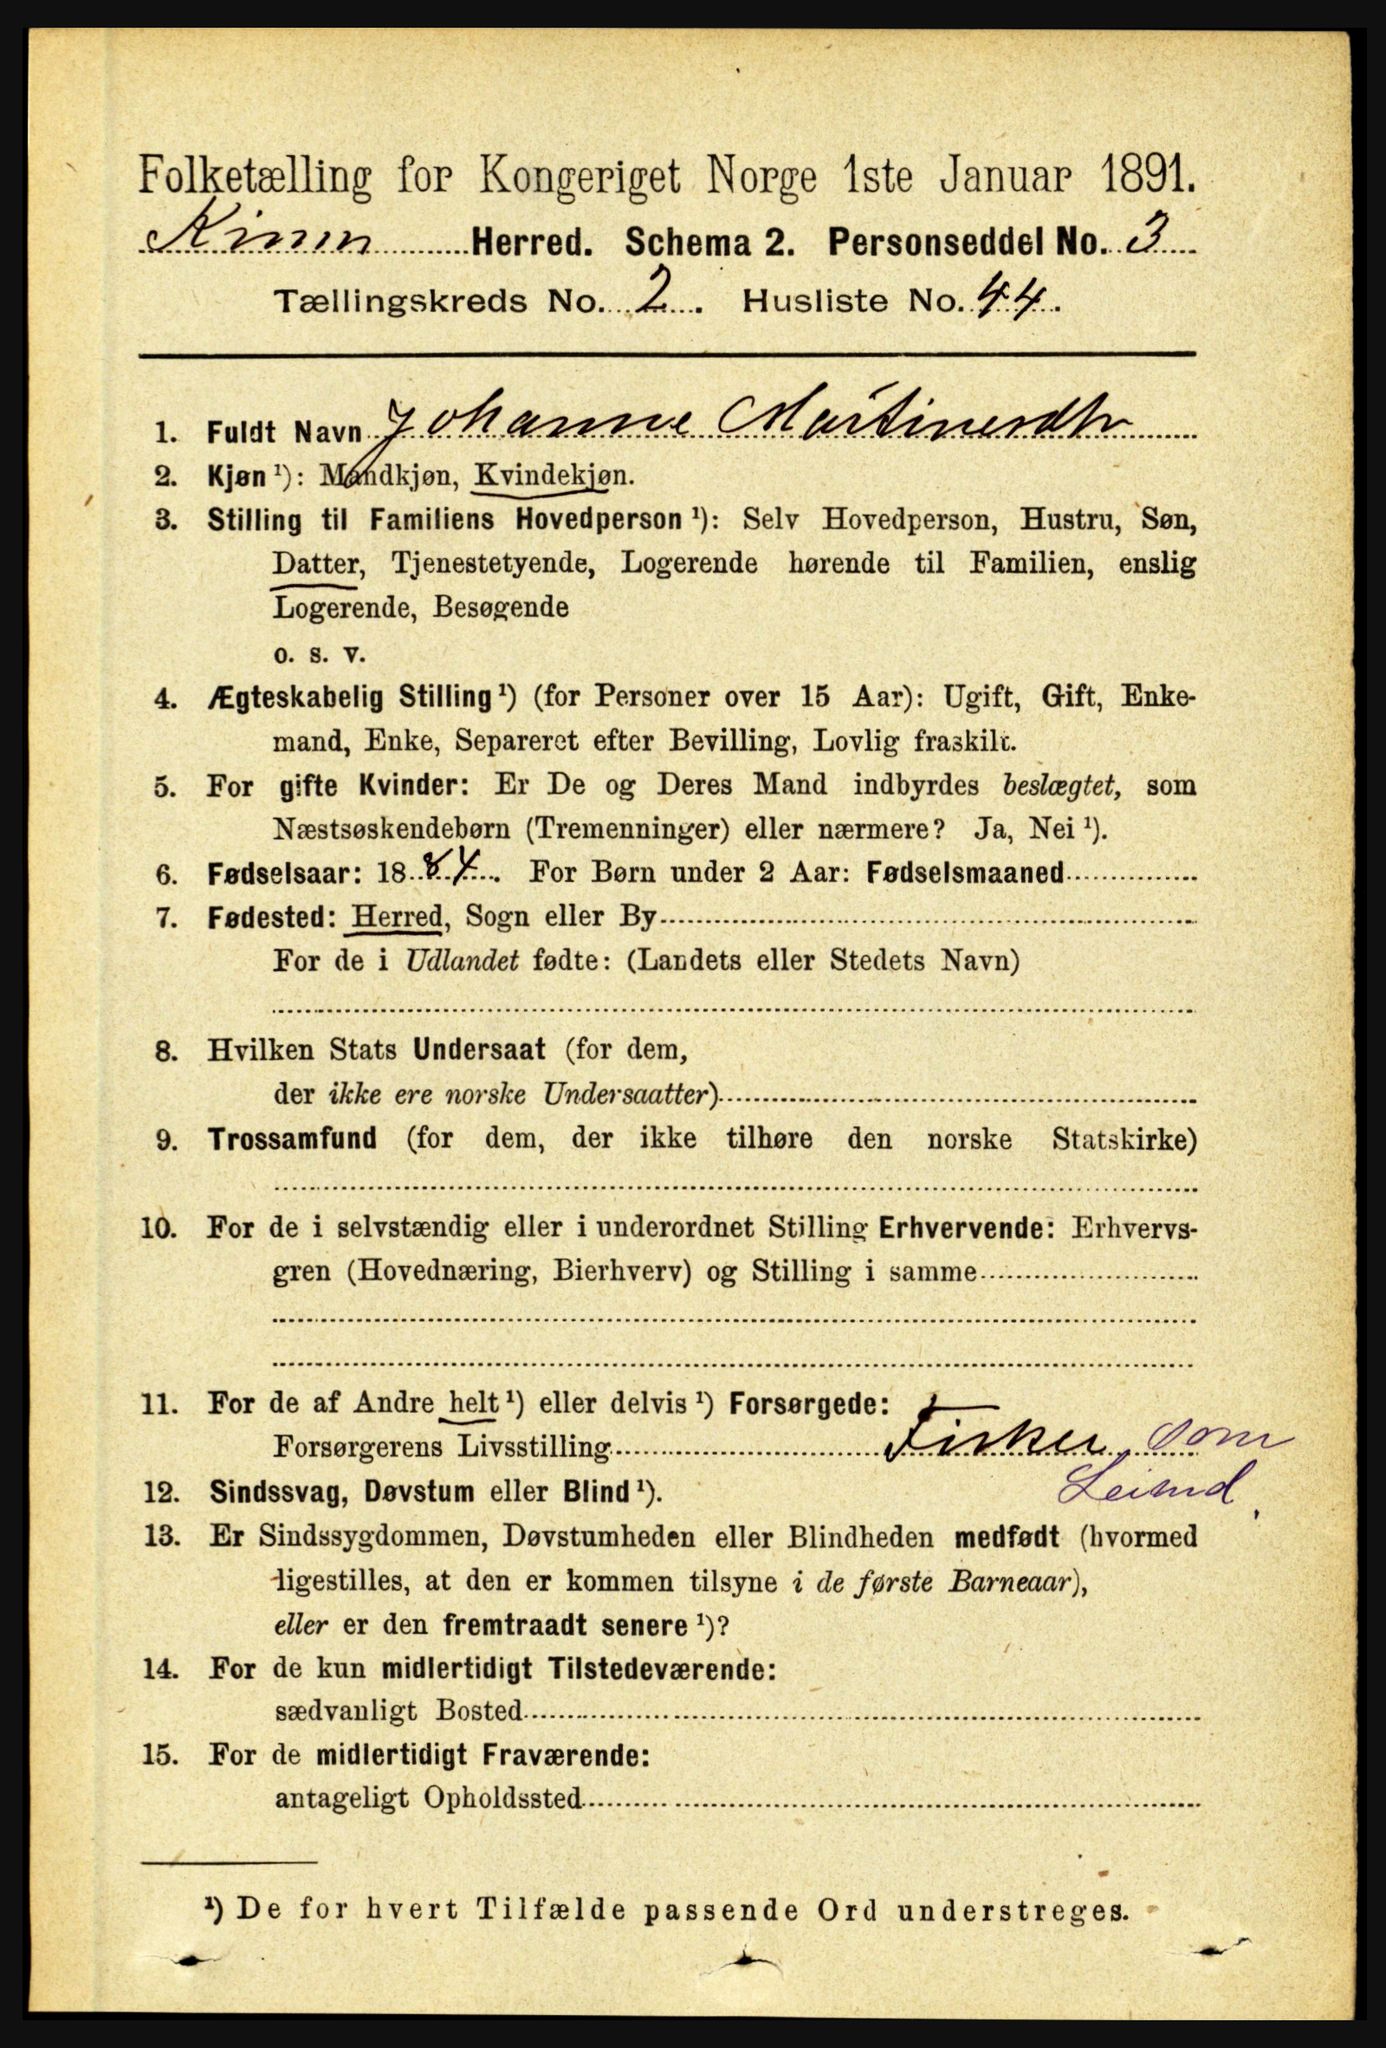 Folketælling for Kongeriget Norge 1ste Januar 1891.
Kinn Herred. Schema 2. Personseddel No. 3
Tællingskreds No. 2. Husliste No. 44.
1. Fuldt Navn Johanne Martinesdtr
2. Kjøn ¹): Mandkjøn, Kvindekjøn.
3. Stilling til Familiens Hovedperson ¹): Selv Hovedperson, Hustru, Søn,
Datter, Tjenestetyende, Logerende hørende til Familien, enslig
Logerende, Besøgende
o. s. v.
4. Ægteskabelig Stilling ¹) (for Personer over 15 Aar): Ugift, Gift, Enke-
mand, Enke, Separeret efter Bevilling, Lovlig fraskilt.
5. For gifte Kvinder: Er De og Deres Mand indbyrdes beslægtet, som
Næstsøskendebørn (Tremenninger) eller nærmere? Ja, Nei ¹).
6. Fødselsaar: 1884. For Børn under 2 Aar: Fødselsmaaned
7. Fødested: Herred, Sogn eller By
For de i Udlandet fødte: (Landets eller Stedets Navn)
8. Hvilken Stats Undersaat (for dem,
der ikke ere norske Undersaatter)
9. Trossamfund (for dem, der ikke tilhøre den norske Statskirke)
10. For de i selvstændig eller i underordnet Stilling Erhvervende: Erhvervs-
gren (Hovednæring, Bierhverv) og Stilling i samme
11. For de af Andre helt ¹) eller delvis ¹) Forsørgede:
Forsørgerens Livsstilling Fisker som
Leiend
12. Sindssvag, Døvstum eller Blind ¹).
13. Er Sindssygdommen, Døvstumheden eller Blindheden medfødt (hvormed
ligestilles, at den er kommen tilsyne i de første Barneaar),
eller er den fremtraadt senere ¹)?
14. For de kun midlertidigt Tilstedeværende:
sædvanligt Bosted
15. For de midlertidigt Fraværende:
antageligt Opholdssted
¹) De for hvert Tilfælde passende Ord understreges.